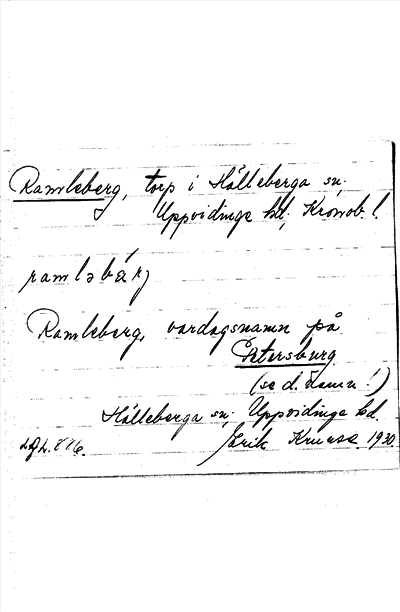 Ramleberg, torp i Hälleberga sn;
Uppvidinge hd; Kronob. l.
ramləbärj
Ramleberg, vardagsnamn på
Petersburg
(se d. namn!)
Hälleberga sn; Uppvidinge hd.
Erik 1930.